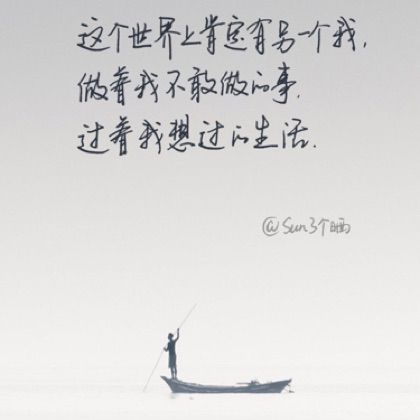 这个世界上肯定有另一个我，
做着我不敢做的事，
过着我想过的生活。
@Sun3个晒